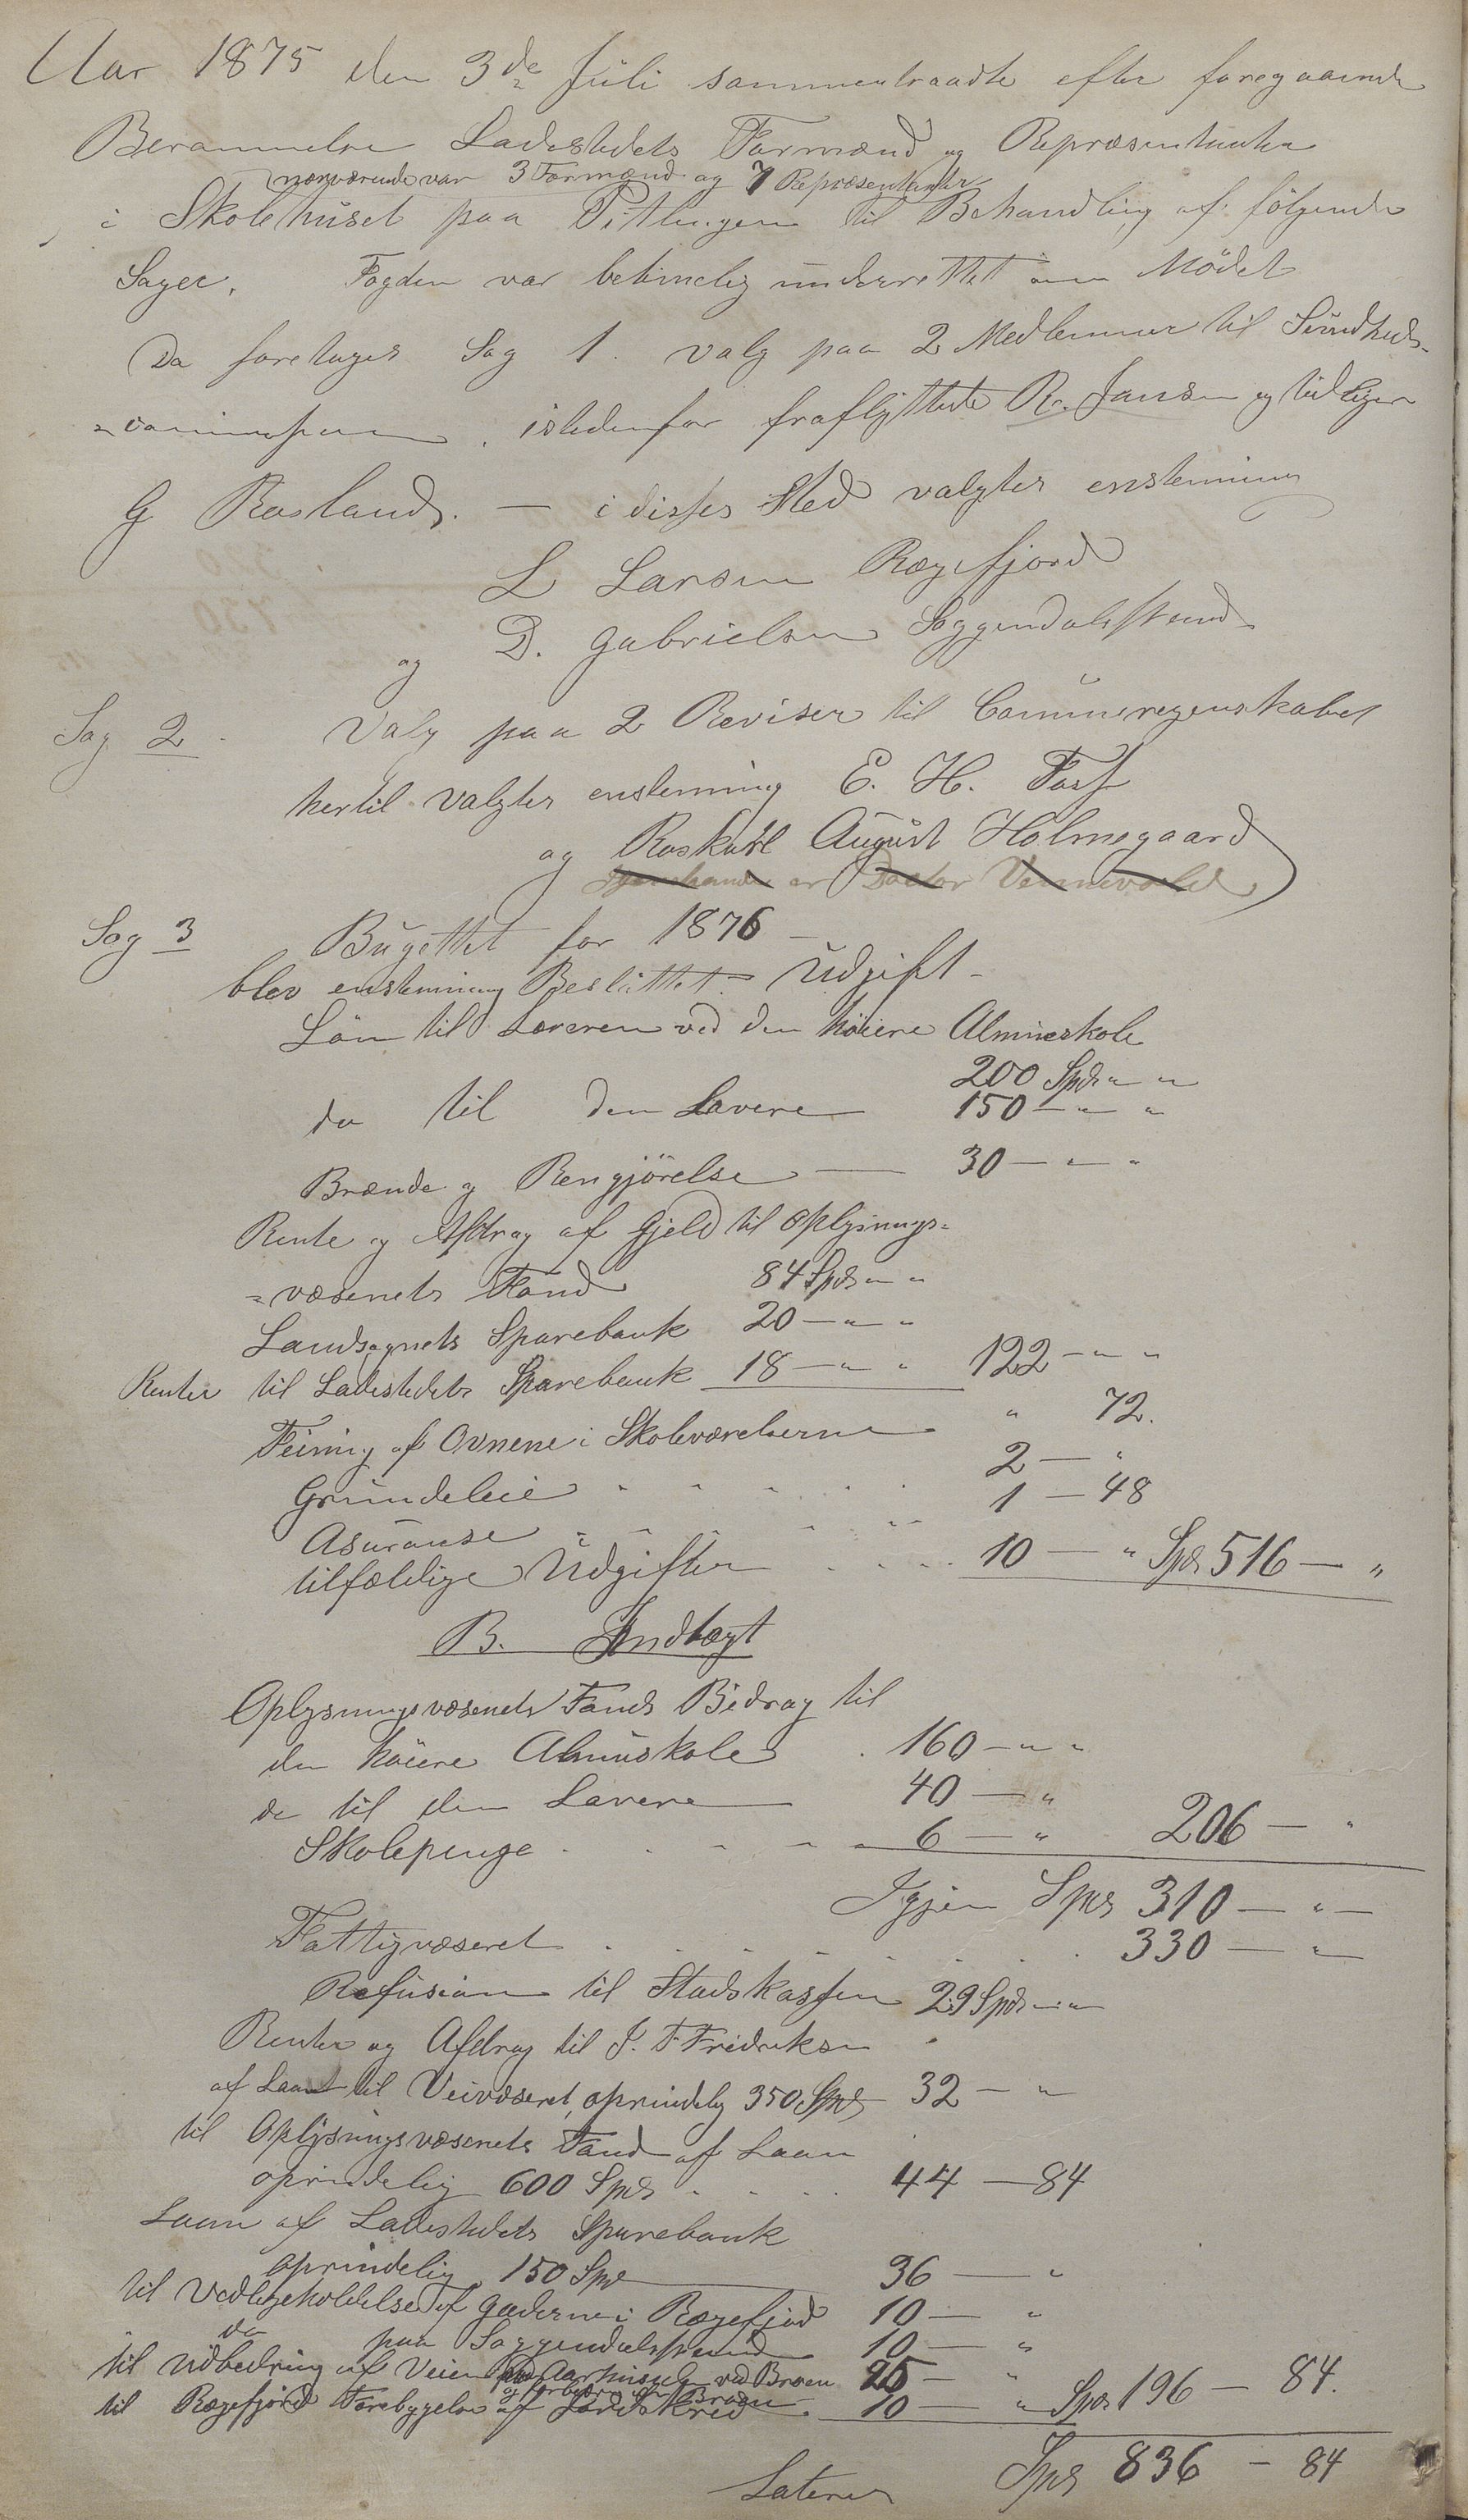 Aar 1875 den 3de Juli sammentraadte efter foregaaende
Berammelse Ladestedets Formænd og Repræsentanter
nærværende var 3 Formænd og 7 Repræsentanter
i Skolehuset paa Pitlingen til Behandling af følgende
Sager. Fogden var betimelig underrettet om Mødet
Da foretages Sag 1. valg paa 2 Medlemmer til Sundheds-
=commissionen, istedenfor fraflyttede R. Jansen og tidligere
G Rosland. — i disses Sted valgtes enstemmig
L Larsen Rægefjord
og D. Gabrielsen Soggendalsstrand
Sag 2. Valg paa 2 Reviser til Communeregenskabet
hertil valgtes enstemmig E. H. Foss
og Raskarl August Holmegaard
er Doctor
Sag 3 Bugettet for 1876 —
blev enstemmig Besluttet. Udgift —
Løn til Læreren ved den høiere Almueskole
200 Spd " "
do til den Lavere 150 — " "
Brænde og Rengjörelse — 30 — " "
Rente og Afdrag af Gjeld til Oplysnings=
=væsenets Fond 84 Spd " "
Landsognets Sparebank 20 — " "
Renter til Ladestedets Sparebank 18 — " " 122 — " "
Feining af Ovnene i Skoleværelserne " 72.
Grundeleie 2 — "
Asuranse 1 — 48
tilfældige Udgifter 10 — " Spd 516 — "
B. Indtægt
Oplysningsvæsenets Fonds Bidrag til
den høiere Almuskole 160 — " "
do til den Lavere 40 — "
Skolepenge 6 — " 206 — "
Igjen Spd 310 — " —
Fattigvæsenet 330 — "
Refusion til Stadskassen 29 Spd " "
Renter og Afdrag til J. F Fredriksen
af Laanet til Veivæsenet, oprindelig 350 Spd 32 — "
til Oplysningsvæsenets Fond af Laan
oprindelig 600 Spd 44 — 84
Laan af Ladestedets Sparebank
oprindelig 150 Spd 36 — "
til Vedligeholdelse af Gaderne i Rægefjord 10 — "
do paa Soggendalsstrand 10 — "
til Udbedring af Veien ved Broen 25 — "
og Broen
til Rægefjord Forebyggelse af Jordskred 10 — " Spd 196 — 84.
Latere Spd 836 — 84